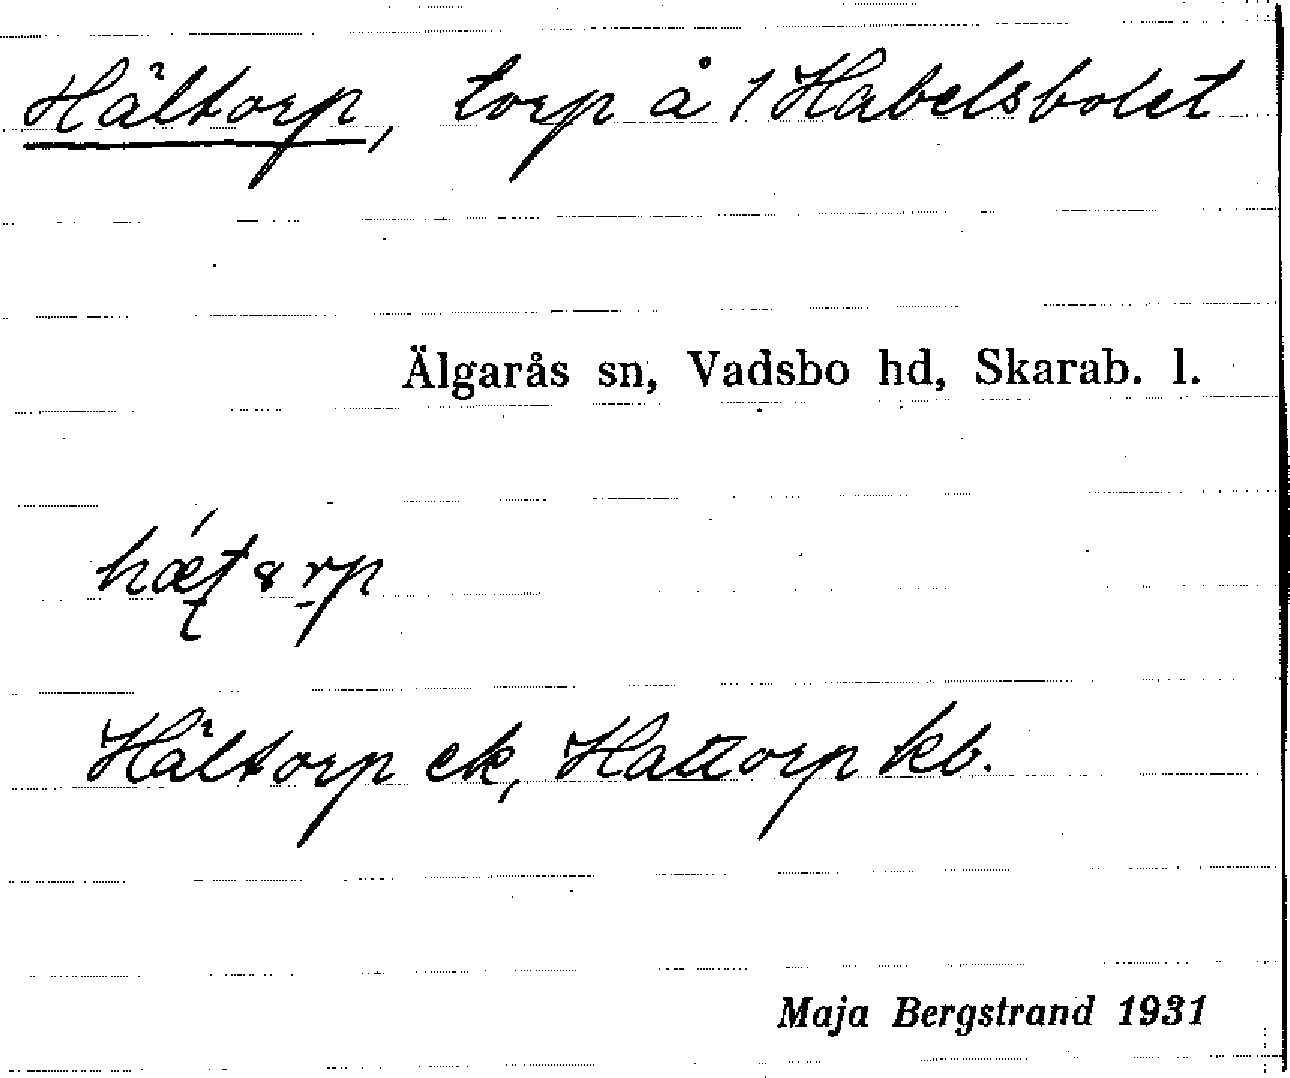 Hältorp, torp å 1 Habelsbolet
Älgarås sn, Vadsbo hd, Skarab. l.
Hältorp ek, Hattorp kb.
Maja Bergstrand 1931